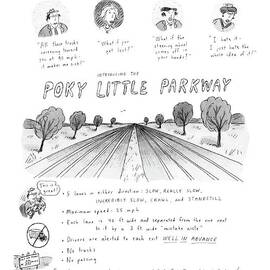 "All those trucks
careening toward
you at 85 mph—
it makes me sick!"
"What if you
get lost?"
"What if the
steering wheel
comes off in
your hands?"
"I hate it—
I just hate the
whole idea of it!"
INTRODUCING THE
POKY LITTLE PARKWAY
This is
great!
• 5 lanes in either direction: SLOW, REALLY SLOW,
INCREDIBLY SLOW, CRAWL, and STANDSTILL
• Maximum speed: 25 mph
• Each lane is 45 ft wide and separated from the one next
to it by a 3 ft wide "mistake aisle"
• Drivers are alerted to each exit WELL IN ADVANCE
• No trucks
• No passing